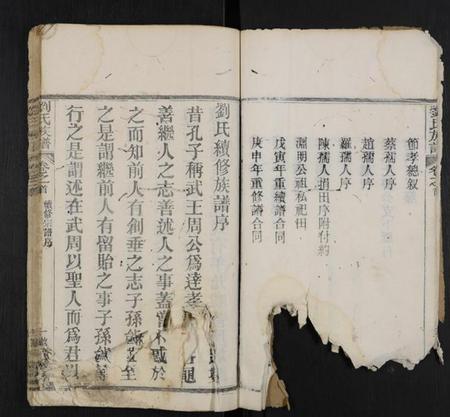 劉氏族譜 卷之首
節孝總叙
蔡孺人序
趙孺人序
羅孺人序
陳孺人捐田序附付約
淵明公祖私祀田
戊寅年重續譜合同
庚申年重修譜合同
劉氏續修族譜序
昔孔子稱武王周公爲達孝
善繼人之志善述人之事蓋嘗不感於
之而知前人有創垂之志子孫至
之是謂繼前人有留貽之事子孫
行之是謂述在武周以聖人而爲君以
劉氏族譜 卷之首 續修宗譜序